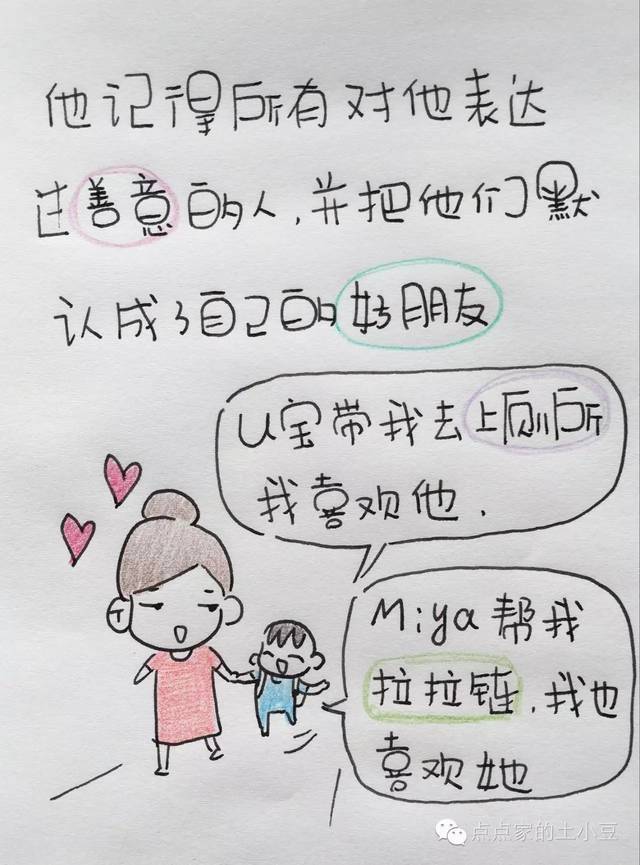 他记得所有对他表达
过善意的人,并把他们默
认成了自己的好朋友
U宝带我去上厕所
我喜欢他.
Miya帮我
拉拉链,我也
喜欢她
点点家的土小豆